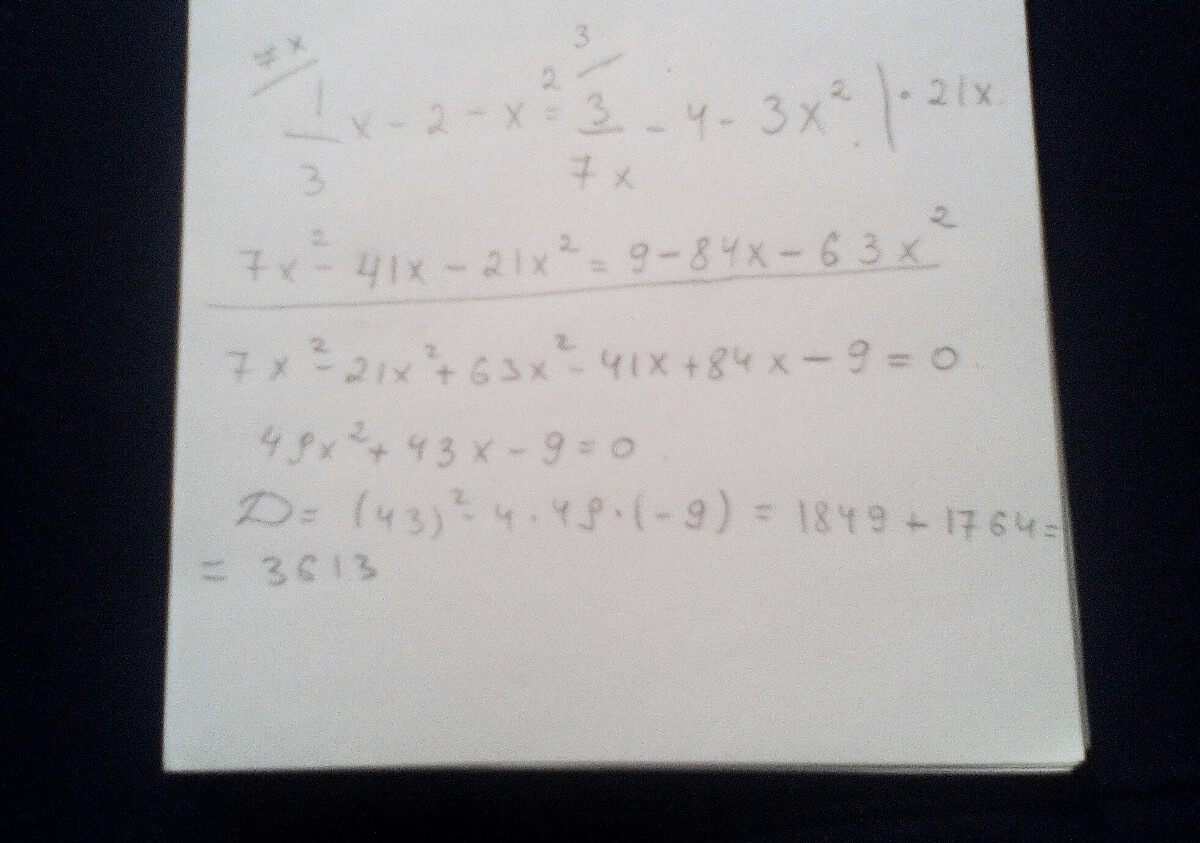 7x 3
1/3 x - 2 - x² = 3/7x - 4 - 3x² | · 21x
7x² - 41x - 21x² = 9 - 84x - 63x²
7x² - 21x² + 63x² - 41x + 84x - 9 = 0
49x² + 43x - 9 = 0
D = (43)² - 4 · 49 · (-9) = 1849 + 1764 =
= 3613